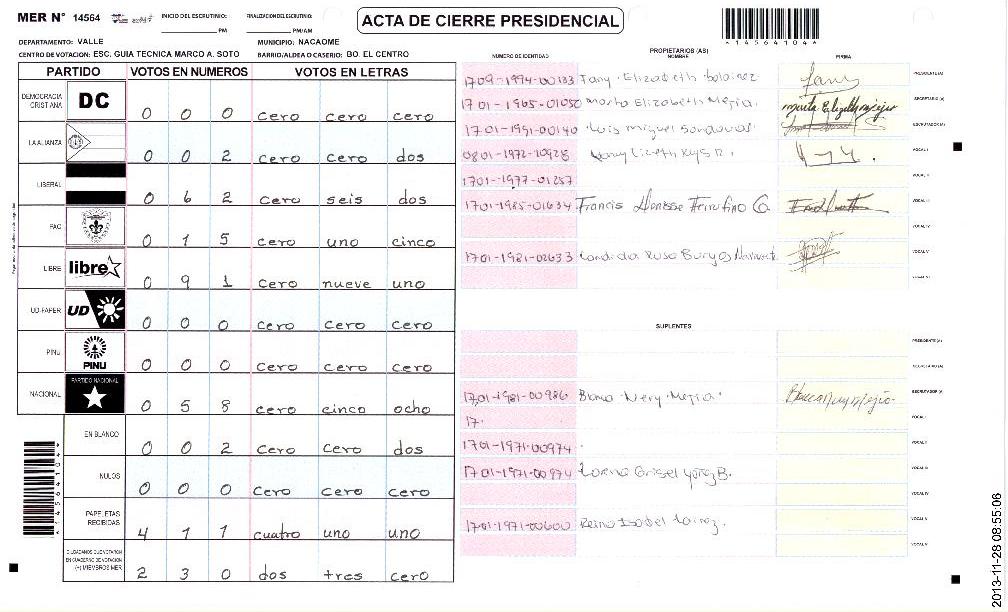 MER N° 14564
INICIO DEL ESCRUTINIO: PM
FINALIZACION DEL ESCRUTINIO: PM/AM
ACTA DE CIERRE PRESIDENCIAL
*14564104*
DEPARTAMENTO: VALLE
MUNICIPIO: NACAOME
CENTRO DE VOTACION: ESC. GUIA TECNICA MARCO A. SOTO
BARRIO/ALDEA O CASERIO: BO. EL CENTRO
PARTIDO VOTOS EN NUMEROS VOTOS EN LETRAS
DEMOCRACIA CRISTIANA DC 0 0 0 cero cero cero
LA ALIANZA 0 0 2 cero cero dos
LIBERAL 0 6 2 cero seis dos
PAC 0 1 5 cero uno cinco
LIBRE libre 0 9 1 cero nueve uno
UD-FAPER UD 0 0 0 cero cero cero
PINU PINU 0 0 0 cero cero cero
NACIONAL PARTIDO NACIONAL 0 5 8 cero cinco ocho
EN BLANCO 0 0 2 cero cero dos
NULOS 0 0 0 cero cero cero
PAPELETAS RECIBIDAS 4 1 1 cuatro uno uno
CIUDADANOS QUE VOTARON EN CUADERNO DE VOTACION (+) MIEMBROS MER 2 3 0 dos tres cero
PROPIETARIOS (AS)
NUMERO DE IDENTIDAD NOMBRE FIRMA
1709-1974-00133 Fany Elizabeth PRESIDENTE(A)
1701-1965-01050 Marta Elizabeth Mejia. Marta Elizabeth Mejia SECRETARIO (A)
1701-1991-00140 Luis miguel Sandoval ESCRUTADOR (A)
0801-1972-10928 VOCAL I
1701-1977-01257 VOCAL II
1701-1985-01634 Francis Ferrufino VOCAL III
VOCAL IV
1701-1981-02633 Candida Rosa Burgos VOCAL V
VOCAL VI
SUPLENTES
PRESIDENTE (A)
SECRETARIO (A)
1701-1981-00986 Blanca Nery Mejia ESCRUTADOR (A)
17. VOCAL I
1701-1971-00974 VOCAL II
1701-1971-00974 Lorna Grisel VOCAL III
VOCAL IV
1701-1971-00600 Reina Isabel VOCAL V
VOCAL VI
*14564104*
2013-11-28 08:55:06